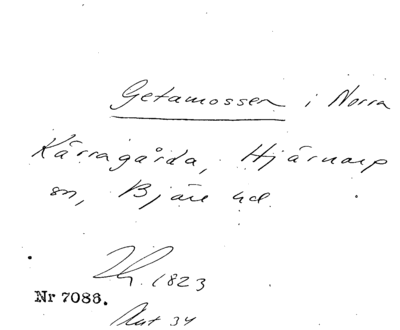 Getamossen i Norra
Kärragårda, Hjärnarp
sn, Bjäre hd
1823
Nr 7086.
Akt 34